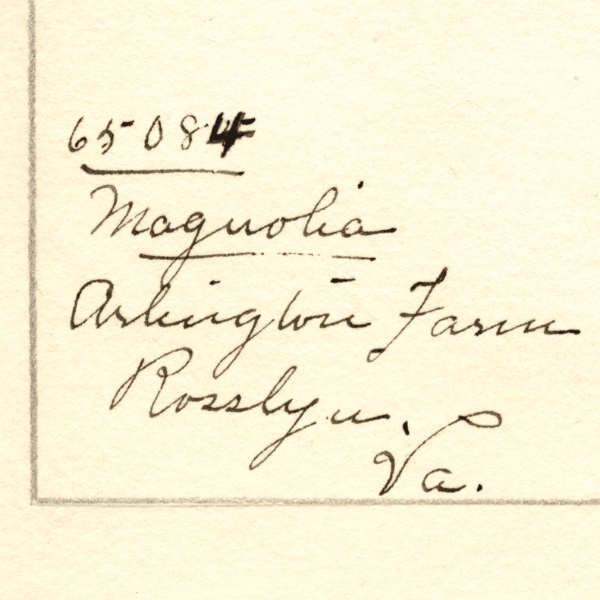 65084
Magnolia
Arlington Farm
Rosslyn,
Va.